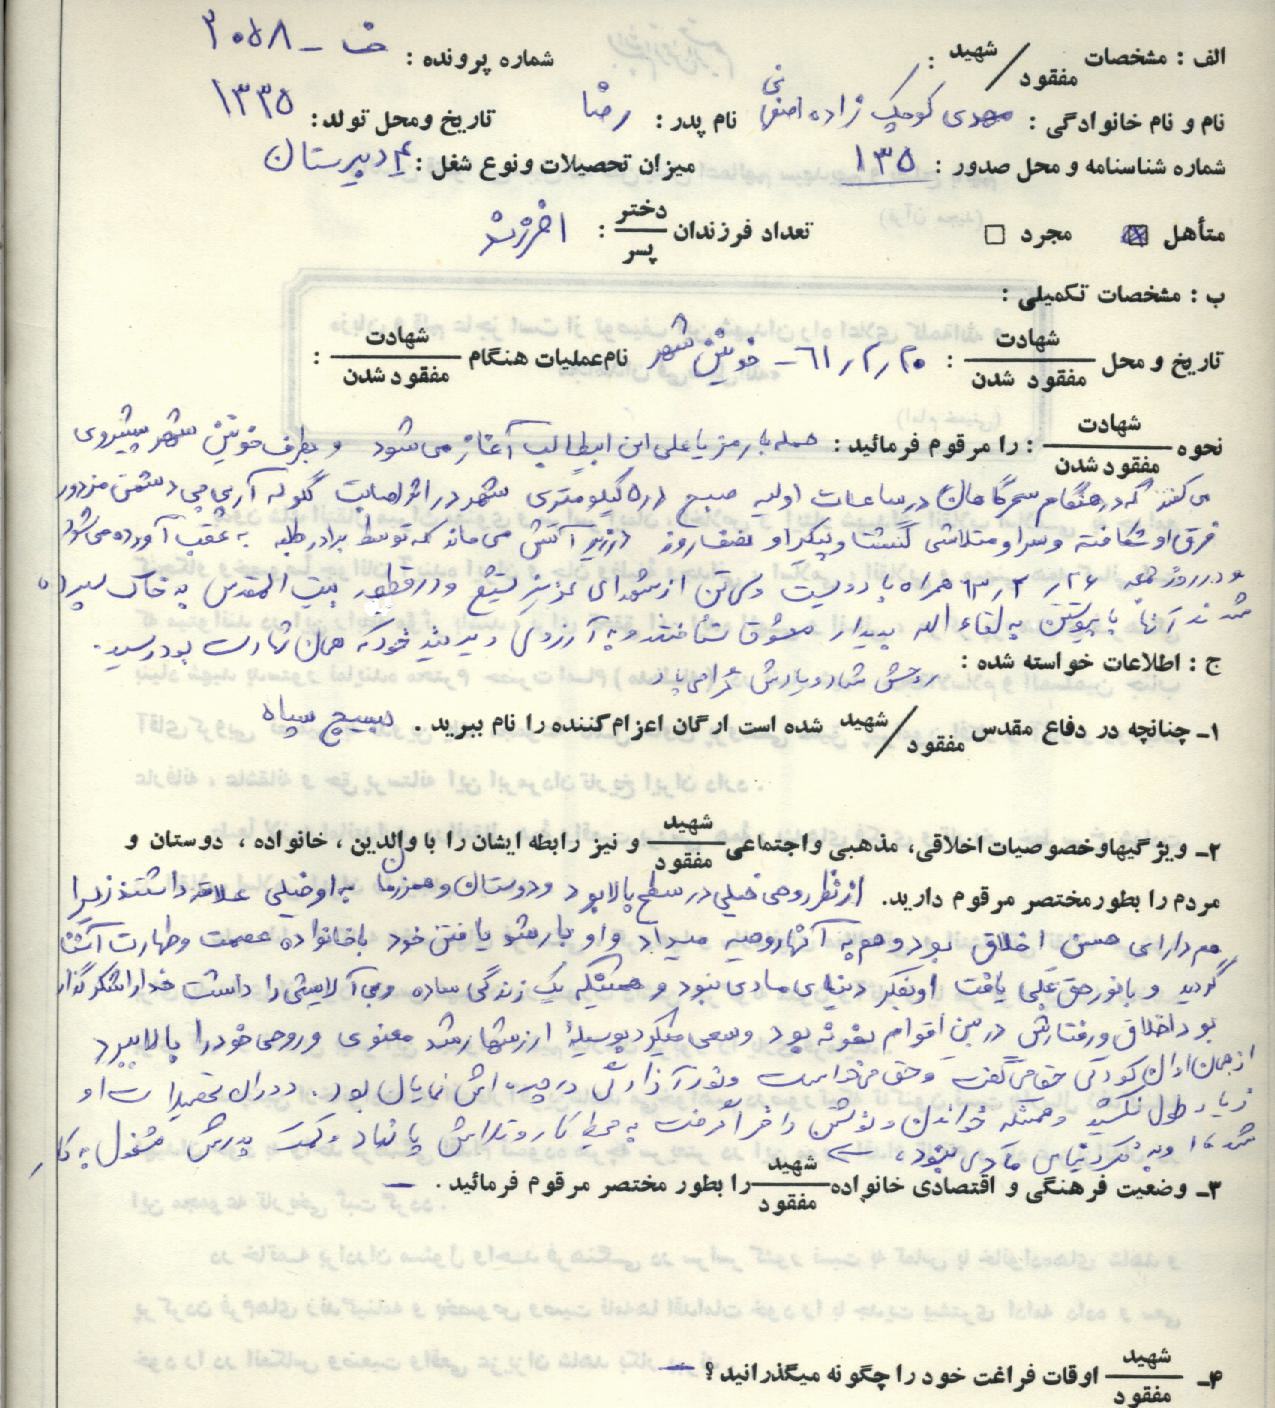 الف : مشخصات شهید / مفقود : شماره پرونده : ف - ۳۰۵۸
نام و نام خانوادگی : مهدی کوچک زاده اصفهانی نام پدر : رضا تاریخ ومحل تولد : ۱۳۳۵
شماره شناسنامه و محل صدور : ۱۳۵ میزان تحصیلات ونوع شغل : ۴ دبیرستان
متأهل ☒ مجرد □ تعداد فرزندان دختر / پسر : ۱ فرزند
ب : مشخصات تکمیلی :
تاریخ و محل شهادت / مفقود شدن : ۶۱/۲/۲۰ - خونین شهر نام عملیات هنگام شهادت / مفقود شدن :
نحوه شهادت / مفقود شدن : را مرقوم فرمائید : حمله با رمز یا علی ابن ابیطالب آغاز می شود و بطرف خونین شهر پیشروی
می کنند که در هنگام سحرگاهان در ساعات اولیه صبح در ۵ کیلومتری شهر در اثر اصابت گلوله آرپی جی دشمن مزدور
فرق او شکافته و سر او متلاشی گشت و پیکر او نصف روز در زیر آتش می ماند که توسط برادر طلبه به عقب آورده می شود
و در روز جمعه ۶۱/۲/۲۶ همراه با دویست و سی تن از شهدای عزیز تشیع و در قطعه بیت المقدس به خاک سپرده
شدند آنها با پیوستن به لقاء الله بدیدار معشوق شتافتند و به آرزوی دیرینه خود که همان شهادت بود رسید.
ج : اطلاعات خواسته شده : روحش شاد و یادش گرامی باد
۱ـ چنانچه در دفاع مقدس شهید / مفقود شده است ارگان اعزام کننده را نام ببرید . بسیج سپاه
۲ـ ویژگیهاوخصوصیات اخلاقی، مذهبی واجتماعی شهید / مفقود و نیز رابطه ایشان را با والدین ، خانواده ، دوستان و
مردم را بطور مختصر مرقوم دارید. از نظر روحی خیلی در سطح بالا بود و دوستان و همرزمان به او خیلی علاقه داشتند زیرا
هم دارای حسن اخلاق بود و هم به آنها روحیه میداد و او با رشد یافتن خود با خانواده عصمت و طهارت آشنا
گردید و با نور حق علی یافت او بفکر دنیای مادی نبود و همینکه یک زندگی ساده و بی آلایشی را داشت خدا را شکر گذار
بود اخلاق و رفتارش در بین اقوام نمونه بود و سعی میکرد بوسیلهٔ ارزشها رشد معنوی و روحی خود را بالا ببرد
از همان اوان کودکی حق می گفت و حق می خواست و نور آزادگی در چهره اش نمایان بود . دوران تحصیلات او
زیاد طول نکشید و همینکه خواندن و نوشتن را فرا گرفت به محیط کار و تلاش پا نهاد و کمک پدرش مشغول به کار
شد ، او به فکر دنیای مادی نبود ،
۳ـ وضعیت فرهنگی و اقتصادی خانواده شهید / مفقود را بطور مختصر مرقوم فرمائید . —
۴ـ شهید / مفقود اوقات فراغت خود را چگونه میگذرانید ؟ —